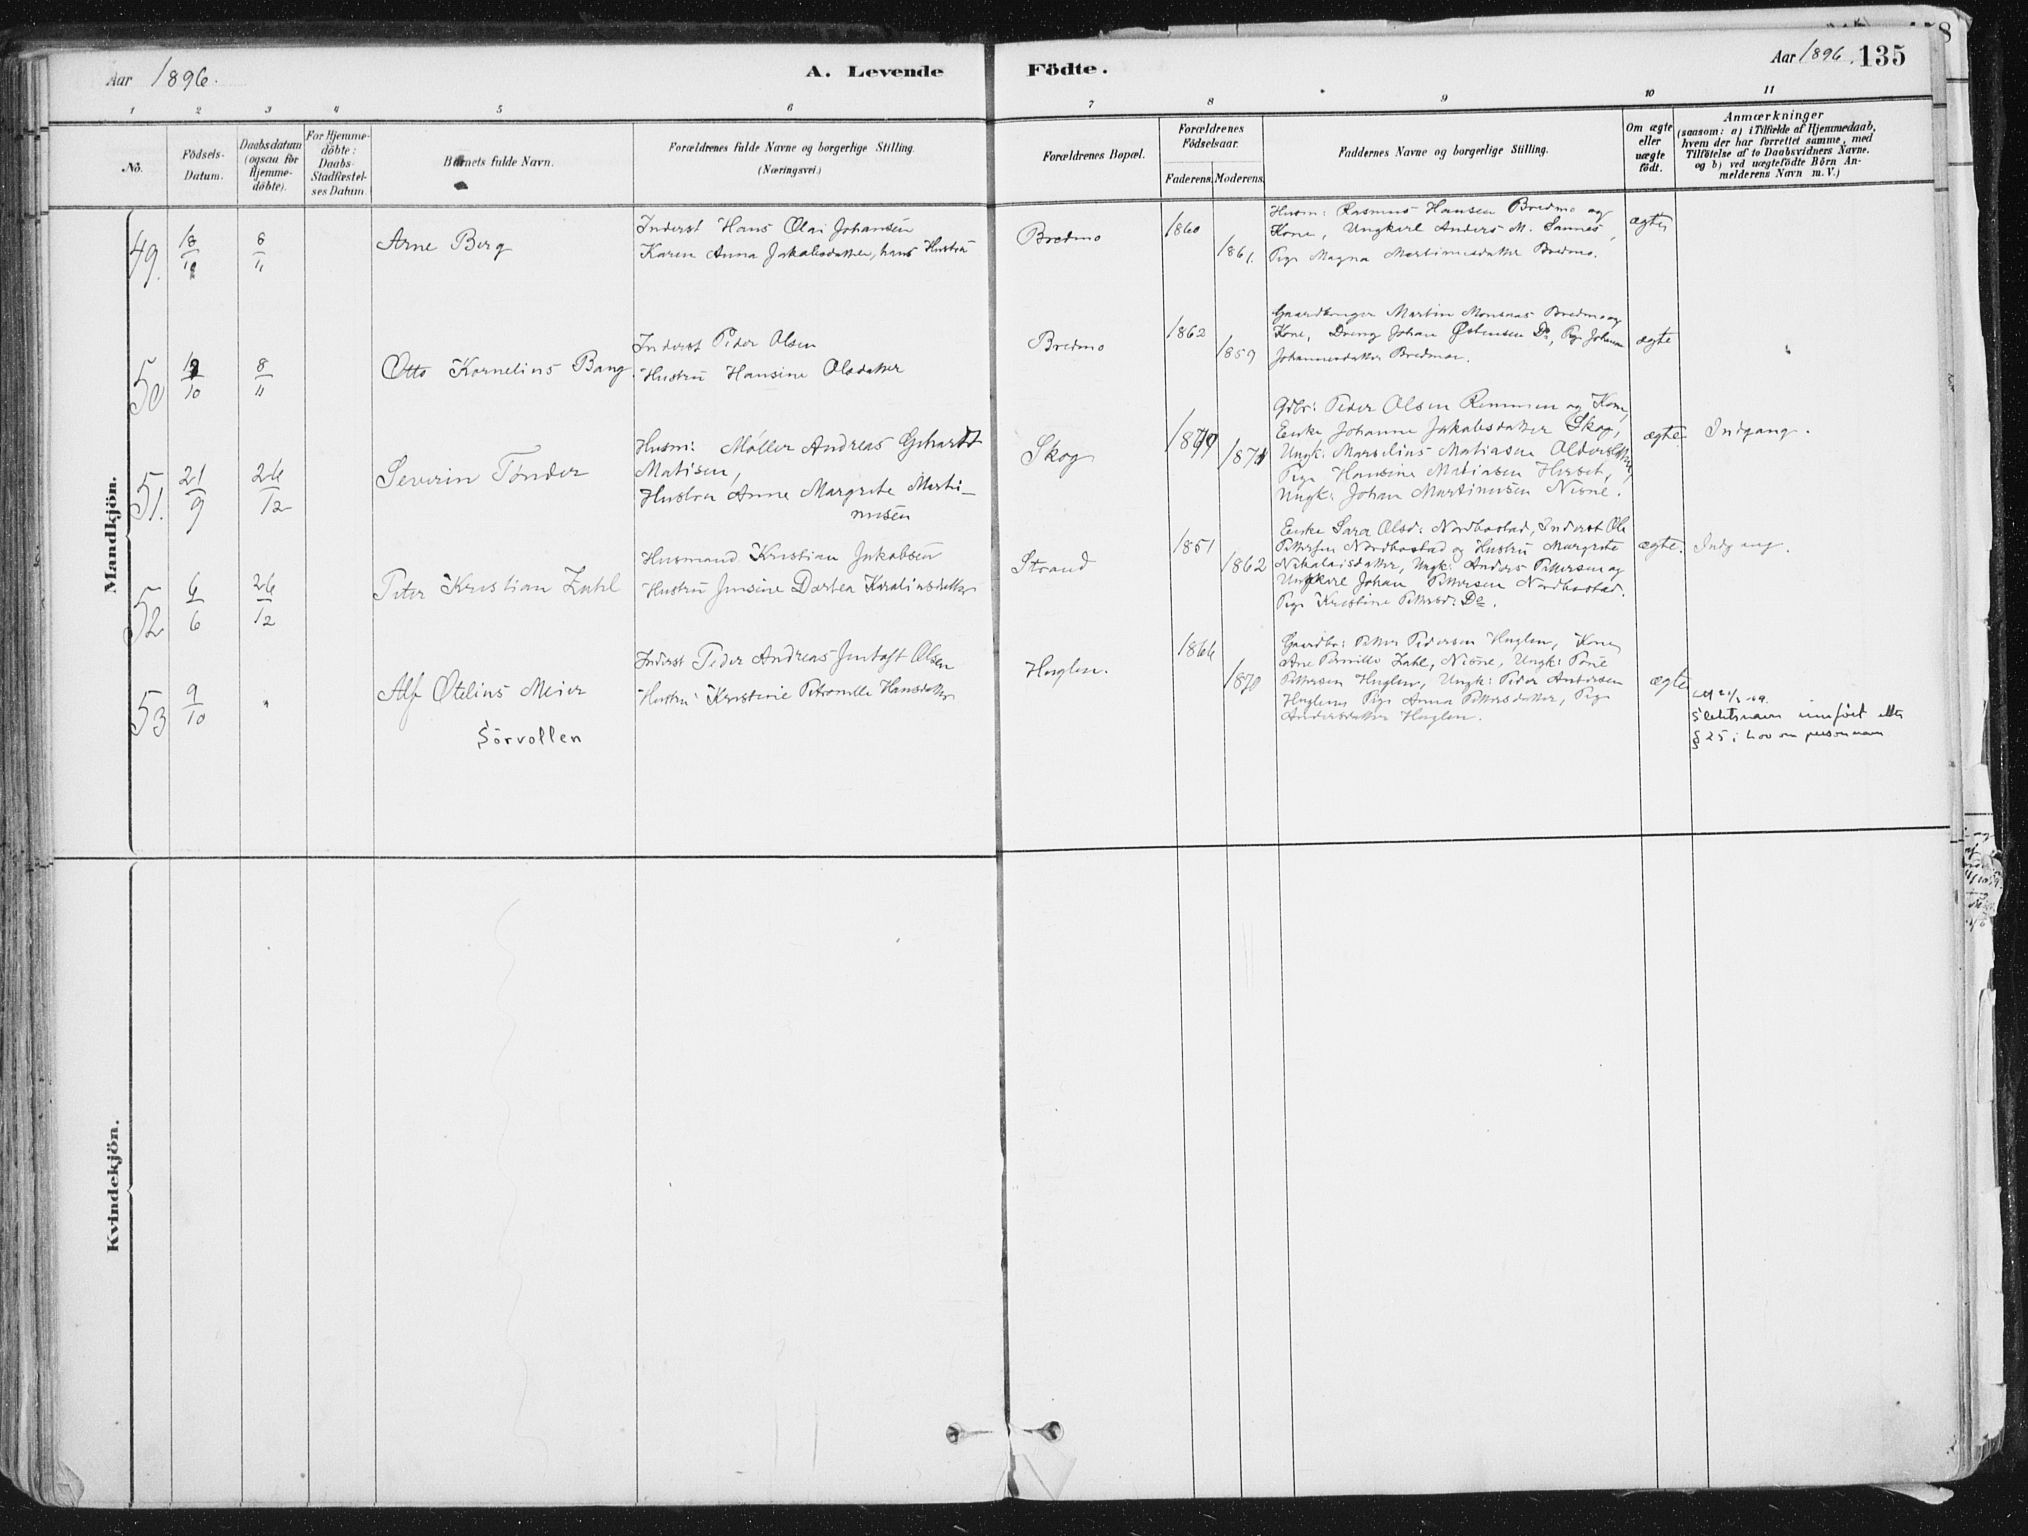 Aar 1896.
A. Levende Födte.
Aar 1896. 135
1 2 3 4 5 6 7 8 9 10 11
No.
Födsels-
Datum.
Daabsdatum
(ogsaa för
Hjemme-
döbte).
For Hjemme-
döbte:
Daabs-
Stadfæstel-
ses Datum
Barnets fulde Navn.
Forældrenes fulde Navne og borgerlige Stilling.
(Næringsvei.)
Forældrenes Bopæl.
Forældrenes
Födselsaar.
Faderens. Moderens.
Faddernes Navne og borgerlige Stilling.
Om ægte
eller
uægte
födt.
Anmærkninger
(saasom: a) i Tilfælde af Hjemmedaab,
hvem der har forrettet samme, med
Tilföielse af to Daabsvidners Navne.
og b) ved uægtefödte Börn An-
melderens Navn m. V.)
Mandkjön.
49. 18/10 8/11
Arne Berg
Inderst Hans Olai Johansen
Karen Anna Jakobsdatter, hans Hustru
Bredmo
1860
1861.
Husm: Rasmus Hansen Bredmo og
Kone, Ungkarl Anders M. Sannes,
Pige Magna Martinusdatter Bredmo.
ægte
50 8/11
Otto Kornelius Bang
Inderst Peder Olsen
Hustru Hansine Olsdatter
Bredmo
1862
1859
Gaardbruger Martin Monsaas Bredmo og
Kone, Dreng Johan Østensen Do, Pige Johanna
Johannesdatter Bredmo.
ægte
51. 21/9 26/12
Severin Tønder
Husm: Møller Andreas Gehardt
Matisen,
Hustru Anne Margrete Marti-
nusen
Skog
Gdbr: Peder Olsen Remmen og Kone,
Enke Johanne Jakobsdatter Skog,
Ungk: Marselius Matiasen
Pige Hansine Matiasen
Ungk: Johan Martinusen Nisne.
ægte. Indgang.
52 6/6 26/12
Peter Kristian Zahl
Husmand Kristian Jakobsen
Hustru Jensine Dortea
Strand
1851
1862
Enke Sara Olsd: Nordbostad, Inderst Ole
Pettersen Nordbostad og Hustru Margrete
Nikolaisdatter, Ungk: Anders Pettersen og
Ungkarl Johan Pettersen Nordbostad.
Pige Kristine Pettersd: Do.
ægte. Indgang.
53 9/10 "
Alf Otelius Meier
Sörvollen
Inderst Peder Andreas Jentoft Olsen
Hustru Kristine Petronelle Hansdatter
Huglen.
1866
1870
Gaardbr: Petter Pedersen Huglen, Kone
Ane Pernille Zahl, Nisne, Ungk: Tone
Pettersen Huglen, Ungk: Peder Andersen
Huglen, Pige Anna Pettersdatter, Pige
Andersdatter Huglen.
ægte
Slektsnavn innført etter
§ 25 i Lov om personnavn
Kvindekjön.